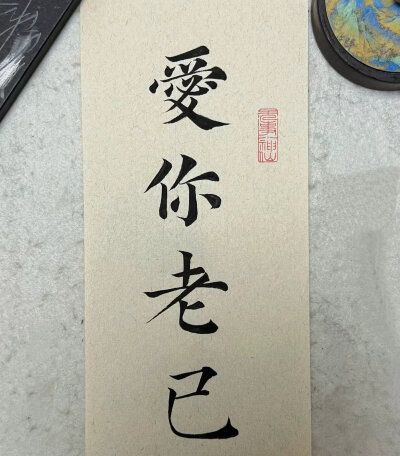 愛你老己